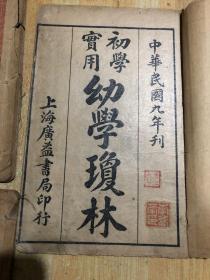 中華民國九年刊
初學
實用
幼學瓊林
上海廣益書局印行